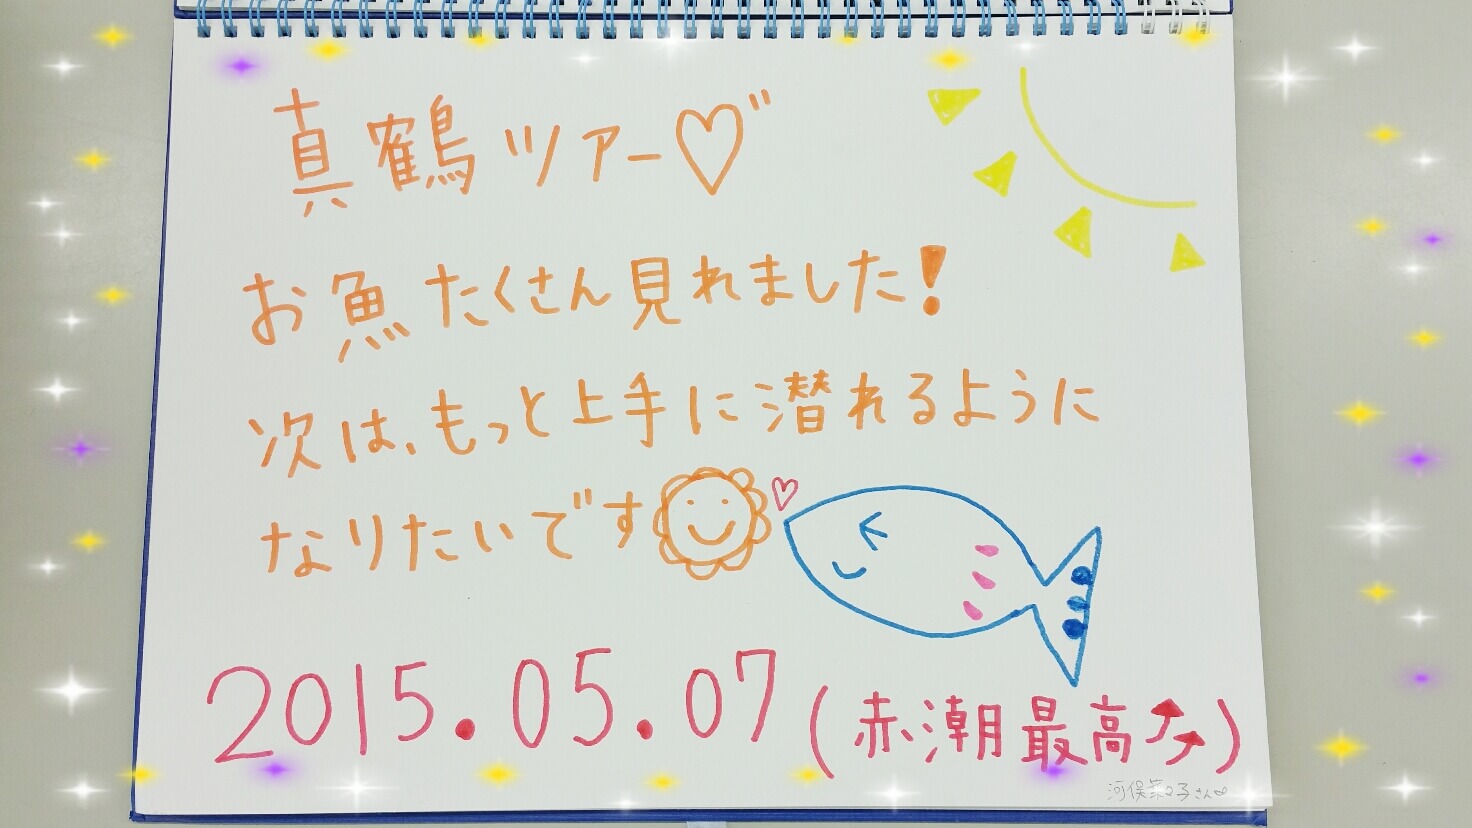 真鶴ツアー♡"
お魚たくさん見れました!
次は、もっと上手に潜れるように
なりたいです
2015.05.07(赤潮最高⤴⤴)